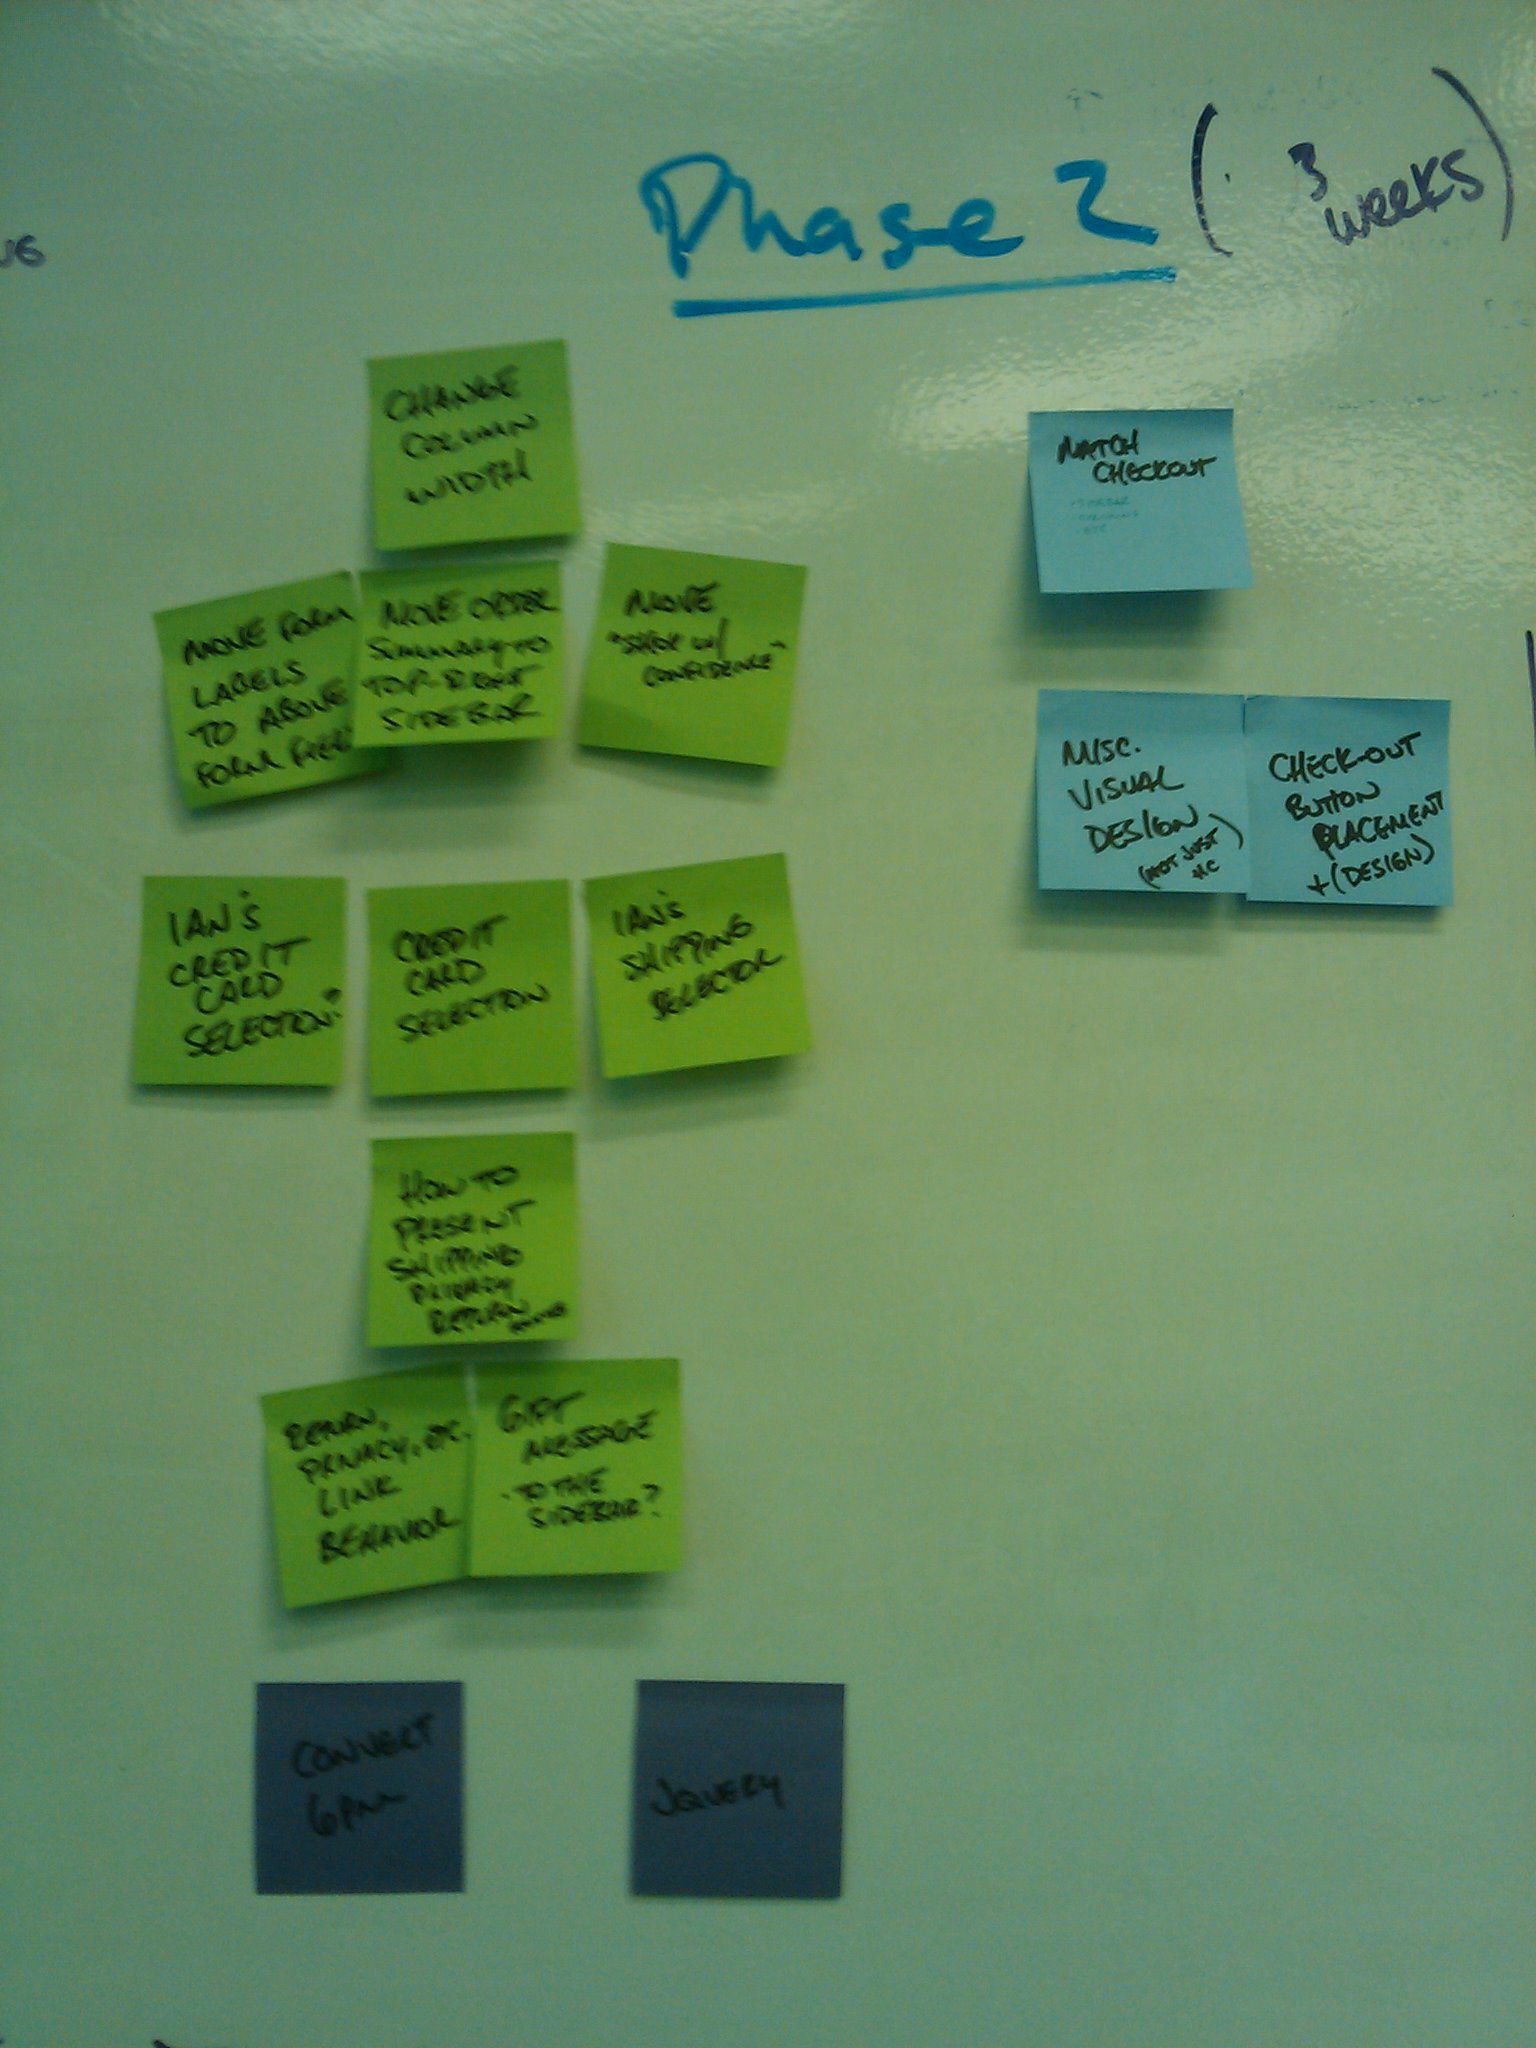 Phase 2 (
3
weeks)
CHANGE
COLUMN
WIDTH
MOVE FORM
LABELS
TO ABOVE
FORM
MOVE ORDER
SUMMARY TO
TOP-RIGHT
SIDEBAR
MOVE
"SHOP W/
CONFIDENCE"
IAN'S
CREDIT
CARD
SELECTION
CREDIT
CARD
SELECTION
IAN'S
SHIPPING
SELECTOR
HOW TO
PRESENT
SHIPPING
PRIVACY
RETURN
RETURN,
PRIVACY, ETC.
LINK
BEHAVIOR
GIFT
MESSAGE
- TO THE
SIDEBAR?
CONVERT
6PM
JQUERY
MATCH
CHECKOUT
ETC
MISC.
VISUAL
DESIGN
(NOT JUST
CHECK-OUT
BUTTON
PLACEMENT
+ (DESIGN)